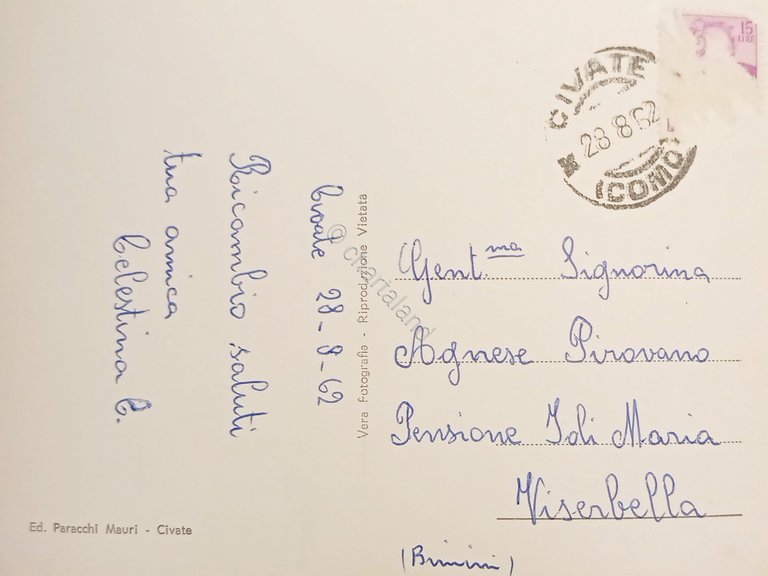 Civate 28-8-62
Ricambio saluti
tua amica
Celestina C.
Vera Fotografia - Riproduzione Vietata
Ed. Paracchi Mauri - Civate
15
LIRE
CIVATE
28 8 62
(COMO)
Gent.ma Signorina
Agnese Pirovano
Pensione Joli Maria
Viserbella
(Rimini)
© Chartaland